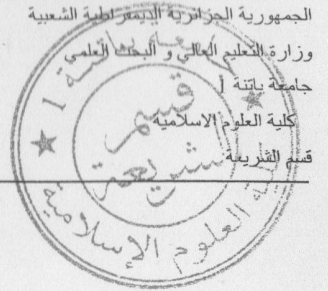 الجمهورية الجزائرية الديمقراطية الشعبية
وزارة التعليم العالي و البحث العلمي
جامعة باتنة 1
كلية العلوم الاسلامية
قسم الشريعة
جامعة باتنة 1
قسم
شريعة
كلية العلوم الإسلامية